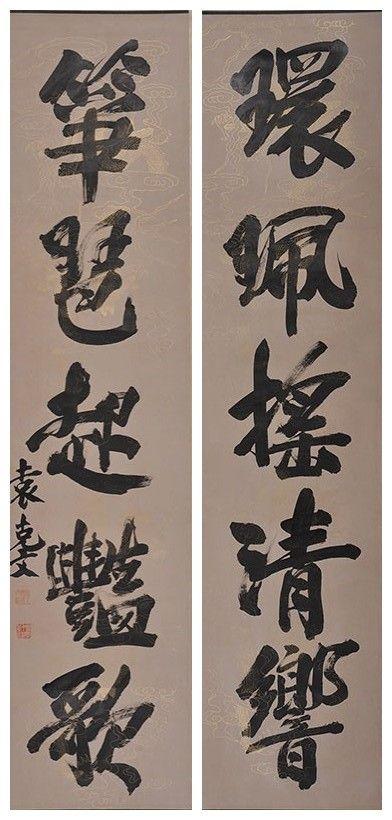 環珮摇清響
筝琶起豔歌
袁克文